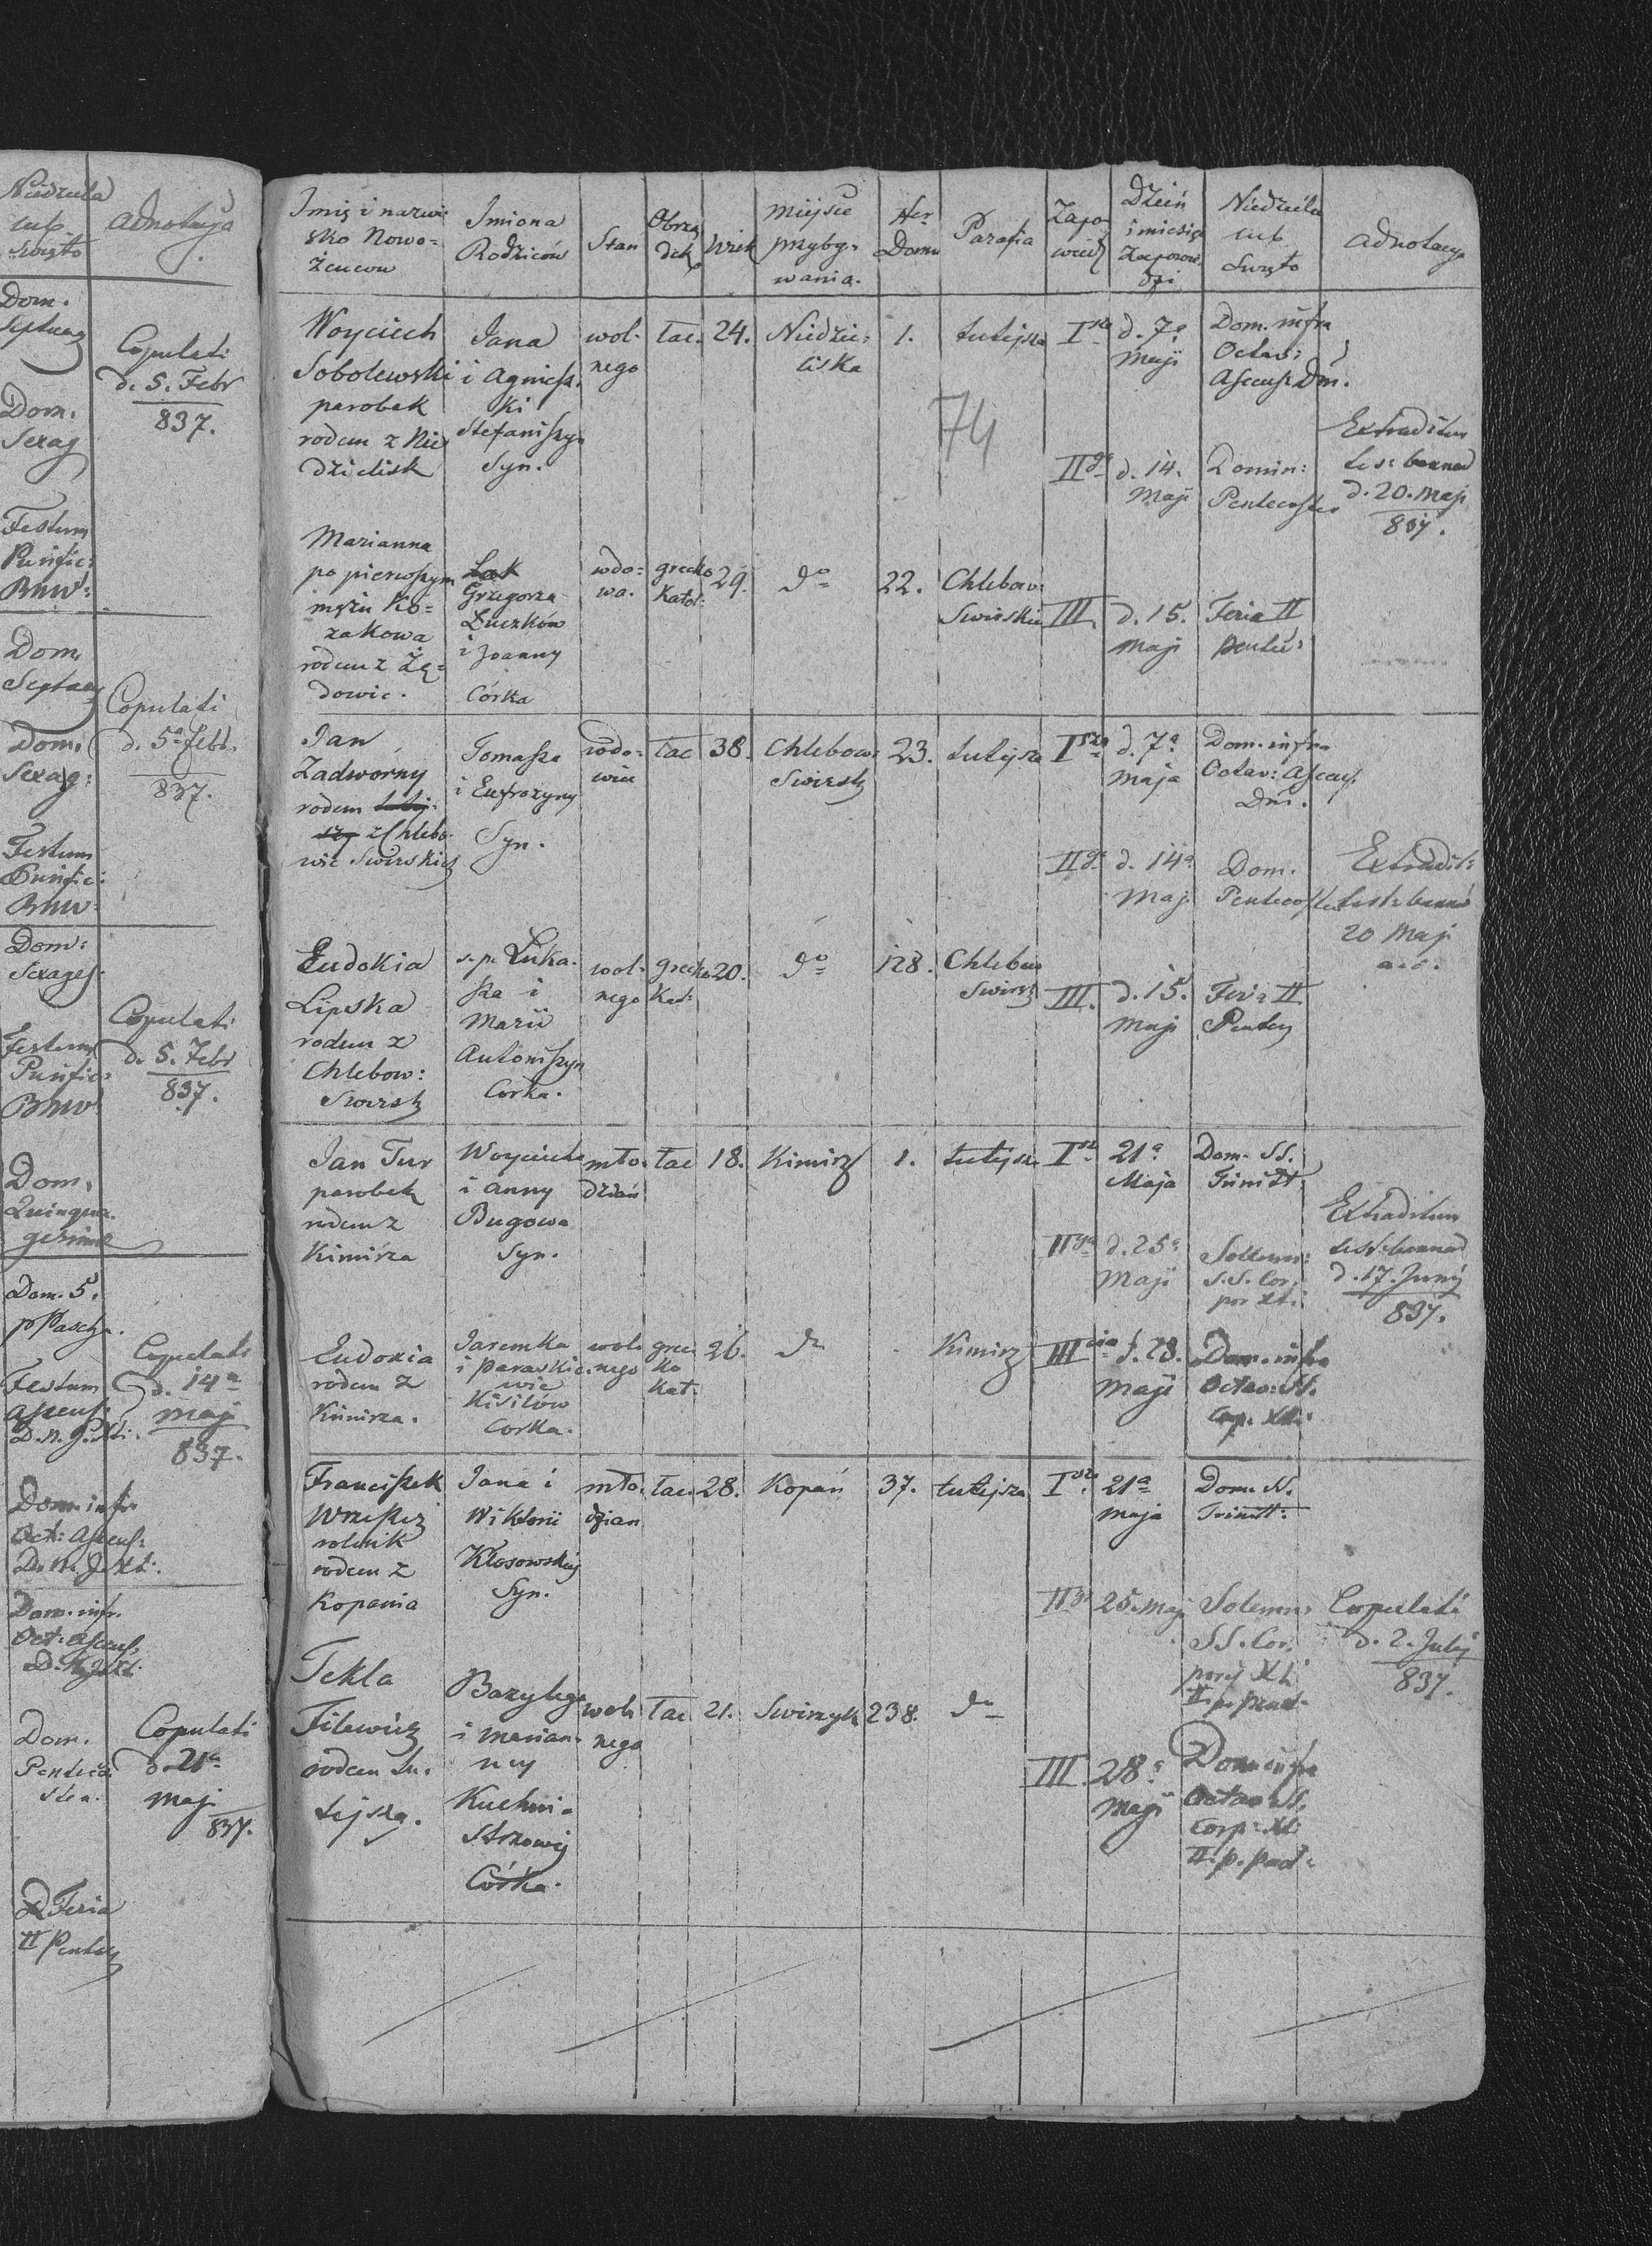 Niedziela
lub
święto
Adnotacya
Dom.
Septuag
Copulati
d. 5. Febr
837.
Dom.
Sexag
Festum
Purific:
BMV:
Dom.
Septuag
Copulati
d. 5ª Febr.
837.
Dom.
Sexag:
Festum
Purific:
BMV:
Dom:
Sexages:
Copulati
d. 5. Febr
837.
Festum
Purific:
BMV:
Dom.
Quinqua
gesima
Dom. 5.
p Pascha.
Copulati
d. 14ª
maji
837.
Festum
Ascens:
D. N. J. Xti.
Dom. infr
Oct: Ascens:
D. N. J. Xti.
Dom. infr.
Oct: Ascens:
D. N. J. Xti.
Dom.
Penteco
stes.
Copulati
d. 21ª
maji
837.
Feria
II Pentec
Imię i nazwi
sko Nowo=
żeńców
Imiona
Rodziców
Stan
Obrzą
dek
Wiek
Miejsce
przyby=
wania.
Ner
Domu
Parafia
Zapo
wiedź
Dzień
i miesiąc
Zapowie
dzi
Niedziela
lub
święto
Adnotacya
74
Woyciech
Sobolewski
parobek
rodem z Nie
dzielisk
Jana
i Agniesz
ki
Stefaniszyn
Syn.
wol-
nego
łac.
24.
Niedzie:
liska
1.
tutejsza
Isza
d. 7ª
Maji
Dom. infra
Octav:
Ascens: Dni.
IIga
d. 14.
Maji
Domin:
Pentecostes
Extraditum
test: bannor
d. 20. Maji
837.
Marianna
po pierwszym
mężu Ko=
zakowa
rodem z Żę=
dowic.
Łak
Grzegorza
Łuczków
i Joanny
Córka
wdo=
wa.
grecko
Katol:
29.
do
22.
Chlebow:
Swirskie
III
d. 15.
Maji
Feria II
Pentec:
Jan
Zadworny
rodem tutej-
szy z Chlebo-
wic Swirskich
Tomasza
i Eufrozyny
Syn.
wdo-
wiec
łac
38.
Chlebow:
Swirsk
23.
tutejsza
Isza
d. 7ª
Maja
Dom. infra
Octav: Ascens:
Dni.
IIga
d. 14ª
Maj.
Dom.
Pentecostes
Extradit:
test: bannor
20 Maji
a. c.
Eudokia
Lipska
rodem z
Chlebow:
Swirsk
s. p. Łuka-
sza i
Marii
Antoniszyn
Corka.
wol-
nego
grecko
Kat:
20.
do
128.
Chlebow
Swirsk
III.
d. 15.
Maji
Feria II
Pentec
Jan Tur
parobek
rodem z
Kimirza
Woyciecha
i Anny
Bugowa
Syn.
mło-
dzian
łac
18.
Kimirz
1.
tutejsza
Isza
21ª
Maja
Dom. SS.
Trinitt.
IIga
d. 25ª
Maji
Solemn:
S.S. Cor-
por Xti.
Extraditum
test: bannor
d. 17. Junij
837.
Eudoxia
rodem z
Kimirza.
Jaremka
i Paraskie-
wie
Kisilów
Corka.
wol-
nego
grec-
ko
kat.
26.
do
Kimirz
IIIcia
d. 28.
Maji
Dom. infra
Octav: SS.
Corp. Xti.
Franciszek
rolnik
rodem z
Kopania
Jana i
Wiktorii
Kłosowskiej
Syn.
mło-
dzian
łac.
28.
Kopań
37.
tutejsza
Isza
21ª
maja
Dom. SS.
Trinitt:
IIga
25. maj
Solemn:
SS. Cor-
poris Xti
Copulati
d. 2. Julij
837.
Tekla
Filewicz
rodem tu-
tejsza.
Bazylego
i Marian-
ny
Kuchmi-
strzowej
Córka.
wol-
nego
łac
21.
Swirzyk
238.
do
III.
28ª
Maji
Dom infra
Octav SS.
Corp: Xti